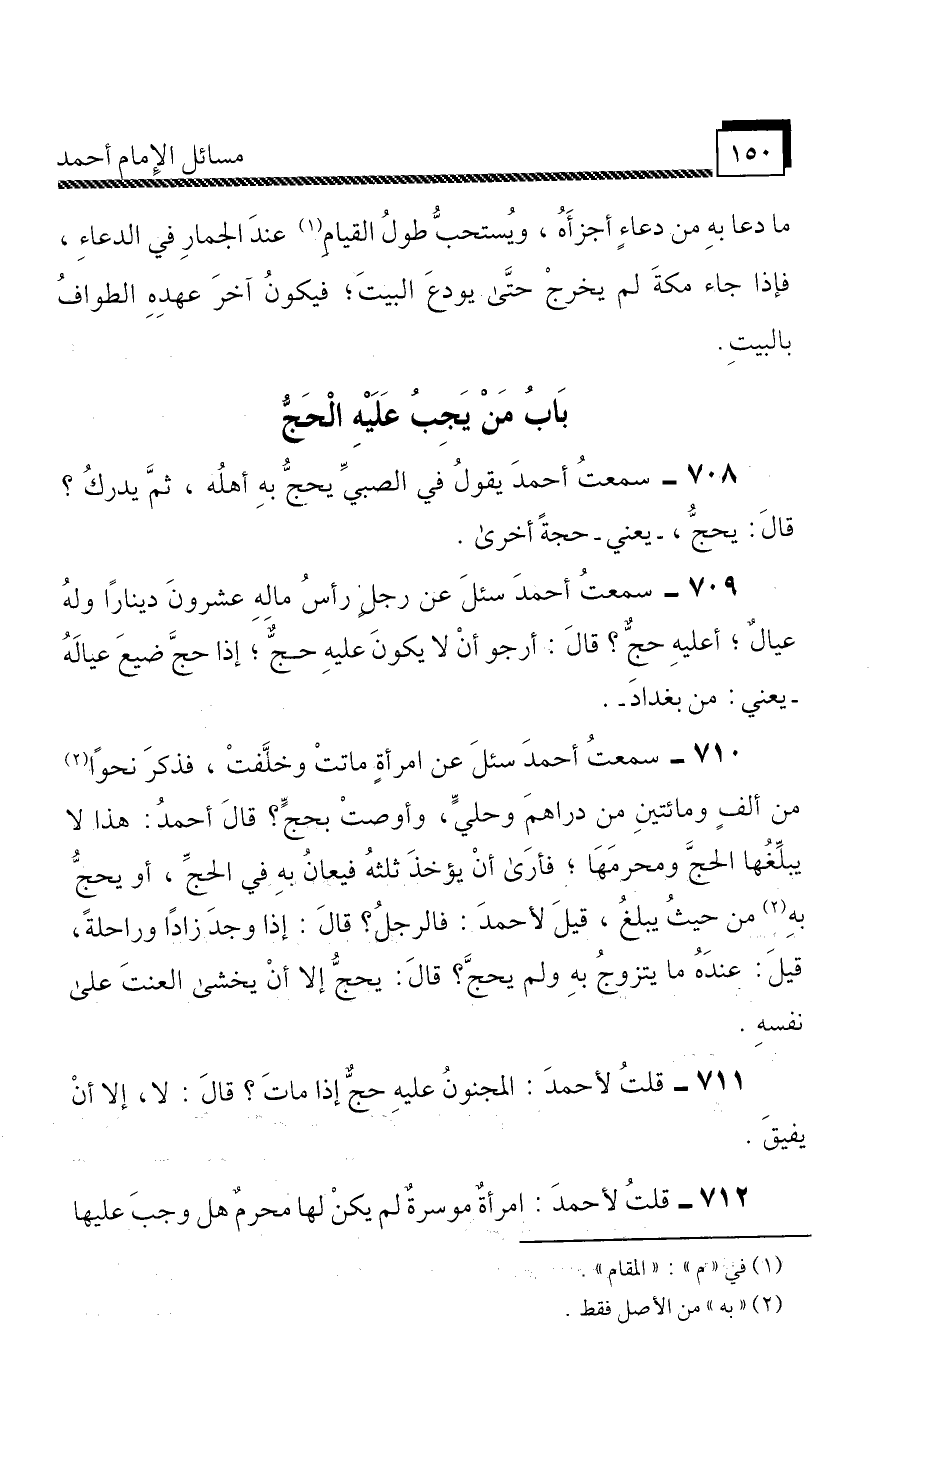 ١٥٠
مسائل الإمام أحمد
ما دعا بهِ من دعاءٍ أجزأَهُ ، ويُستحبُّ طولُ القيامِ(١) عندَ الجمارِ في الدعاءِ ،
فإذا جاء مكةَ لم يخرجْ حتَّى يودعَ البيتَ؛ فيكونُ آخرَ عهدِهِ الطوافُ
بالبيتِ .
بَابُ مَنْ يَجِبُ عَلَيْهِ الْحَجُّ
٧٠٨ ـ سمعتُ أحمدَ يقولُ في الصبيِّ يحجُّ بهِ أهلُه ، ثمَّ يدركُ ؟
قالَ : يحجُّ ، ـ يعني ـ حجةً أخرىٰ .
٧٠٩ ـ سمعتُ أحمدَ سئلَ عن رجلٍ رأسُ مالِهِ عشرونَ دينارًا ولهُ
عيالٌ ؛ أعليهِ حجٌّ ؟ قالَ : أرجو أنْ لا يكونَ عليهِ حـجٌّ ؛ إذا حجَّ ضيعَ عيالَهُ
ـ يعني : من بغدادَ ـ .
٧١٠ ـ سمعتُ أحمدَ سئلَ عن امرأةٍ ماتتْ وخلَّفتْ ، فذكرَ نحوًا(٢)
من ألفٍ ومائتينِ من دراهمَ وحليٍّ ، وأوصتْ بحجٍّ؟ قالَ أحمدُ : هذا لا
يبلِّغُها الحجَّ ومحرمَهَا ؛ فأرَىٰ أنْ يؤخذَ ثلثهُ فيعانُ بهِ في الحجِّ ، أو يحجُّ
بهِ(٢) من حيثُ يبلغُ ، قيلَ لأحمدَ : فالرجلُ؟ قالَ : إذا وجدَ زادًا وراحلةً ،
قيلَ : عندَهُ ما يتزوجُ بهِ ولم يحجَّ؟ قالَ : يحجُّ إلا أنْ يخشىٰ العنتَ علىٰ
نفسهِ .
٧١١ ـ قلتُ لأحمدَ : المجنونُ عليهِ حجٌّ إذا ماتَ ؟ قالَ : لا ، إلا أنْ
يفيقَ .
٧١٢ ـ قلتُ لأحمدَ : امرأةٌ موسرةٌ لم يكنْ لها محرمٌ هل وجبَ عليها
(١) في «م» : «المقام» .
(٢) «به» من الأصل فقط .